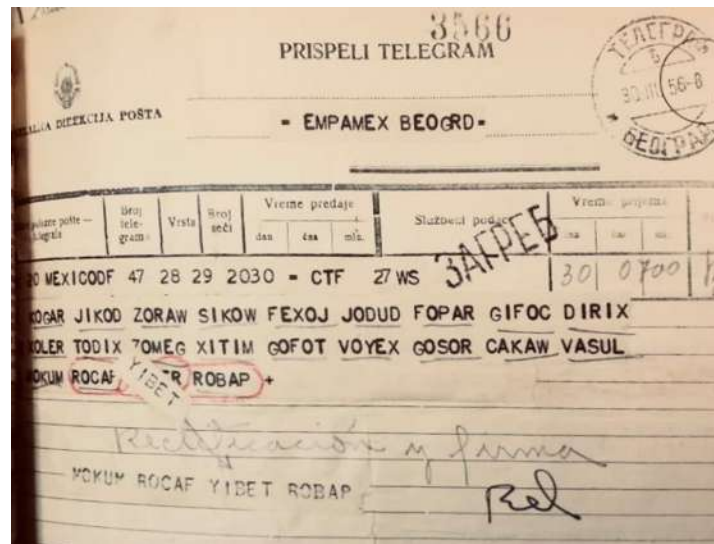 3566
PRISPELI TELEGRAM
ТЕЛЕГРАФ
Б
30.III.56-8
БЕОГРАД
DIREKCIJA POŠTA
= EMPAMEX BEOGRD=
Broj tele- grama
Vrsta
Broj reči
Vreme predaje
dan čas min.
Službeni podaci
Vreme prijema
ЗАГРЕБ
MEXICODF 47 28 29 2030 = CTF 27 WS
30 0700
KOGAR JIKOD ZORAW SIKOW FEXOJ JODUD FOPAR GIFOC DIRIX
KOLER TODIX ZOMEG XITIM GOFOT VOYEX GOSOR CAKAW VASUL
MOKUM ROCAF YIBET ROBAP +
Rectificación y firma
MOKUM ROCAF YIBET ROBAP